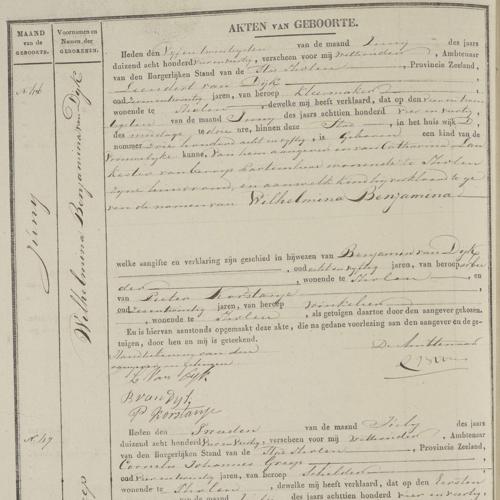 MAAND
van de
GEBOORTE.
Voornamen en
Namen, der
GEBORENEN.
AKTEN VAN GEBOORTE.
N. 46
Juny
Wilhelmina Benjamina van Dijk
Heden den Vijfentwintigsten van de maand Juny des jaars
duizend acht honderd vierenveertig, verscheen voor mij Wethouder, Ambtenaar
van den Burgerlijken Stand van de Stad Tholen, Provincie Zeeland,
Leendert van Dijk
oud jaren, van beroep Kleermaker
wonende te Tholen, dewelke mij heeft verklaard, dat op den
van de maand Juny des jaars achttien honderd vier en veertig,
des middags te drie ure, binnen deze Stad, in het huis wijk D,
nommer drie honderd acht en vijftig, is Geboren een kind van de
Vrouwelijke kunne, Van hem aangever en van Catharina Lan
kester van beroep wonende te Tholen
zijne huisvrouw, en aan welk kind hij verklaard te ge
ven de namen van Wilhelmina Benjamina
welke aangifte en verklaring zijn geschied in bijwezen van Benjamin van Dijk
, oud acht en vijftig jaren, van beroep arbei
der , wonende te Tholen en
van Pieter Korstanje
oud jaren, van beroep winkelier
, wonende te Tholen, als getuigen daartoe door den aangever gekozen.
En is hiervan aanstonds opgemaakt deze akte, die na gedane voorlezing aan den aangever en de ge-
tuigen, door hen en mij is geteekend.
Handteekening van den
aangever en getuigen
De Ambtenaar
L Van Dijk
B van Dijk
P Korstanje
N. 47
Heden den Tweeden van de maand July des jaars
duizend acht honderd vierenveertig, verscheen voor mij Wethouder, Ambtenaar
van den Burgerlijken Stand van de Stad Tholen, Provincie Zeeland,
Cornelis Johannes
oud vier en twintig jaren, van beroep Schilder
wonende te Tholen, dewelke mij heeft verklaard, dat op den Eersten
van de maand July des jaars achttien honderd vier en veertig,